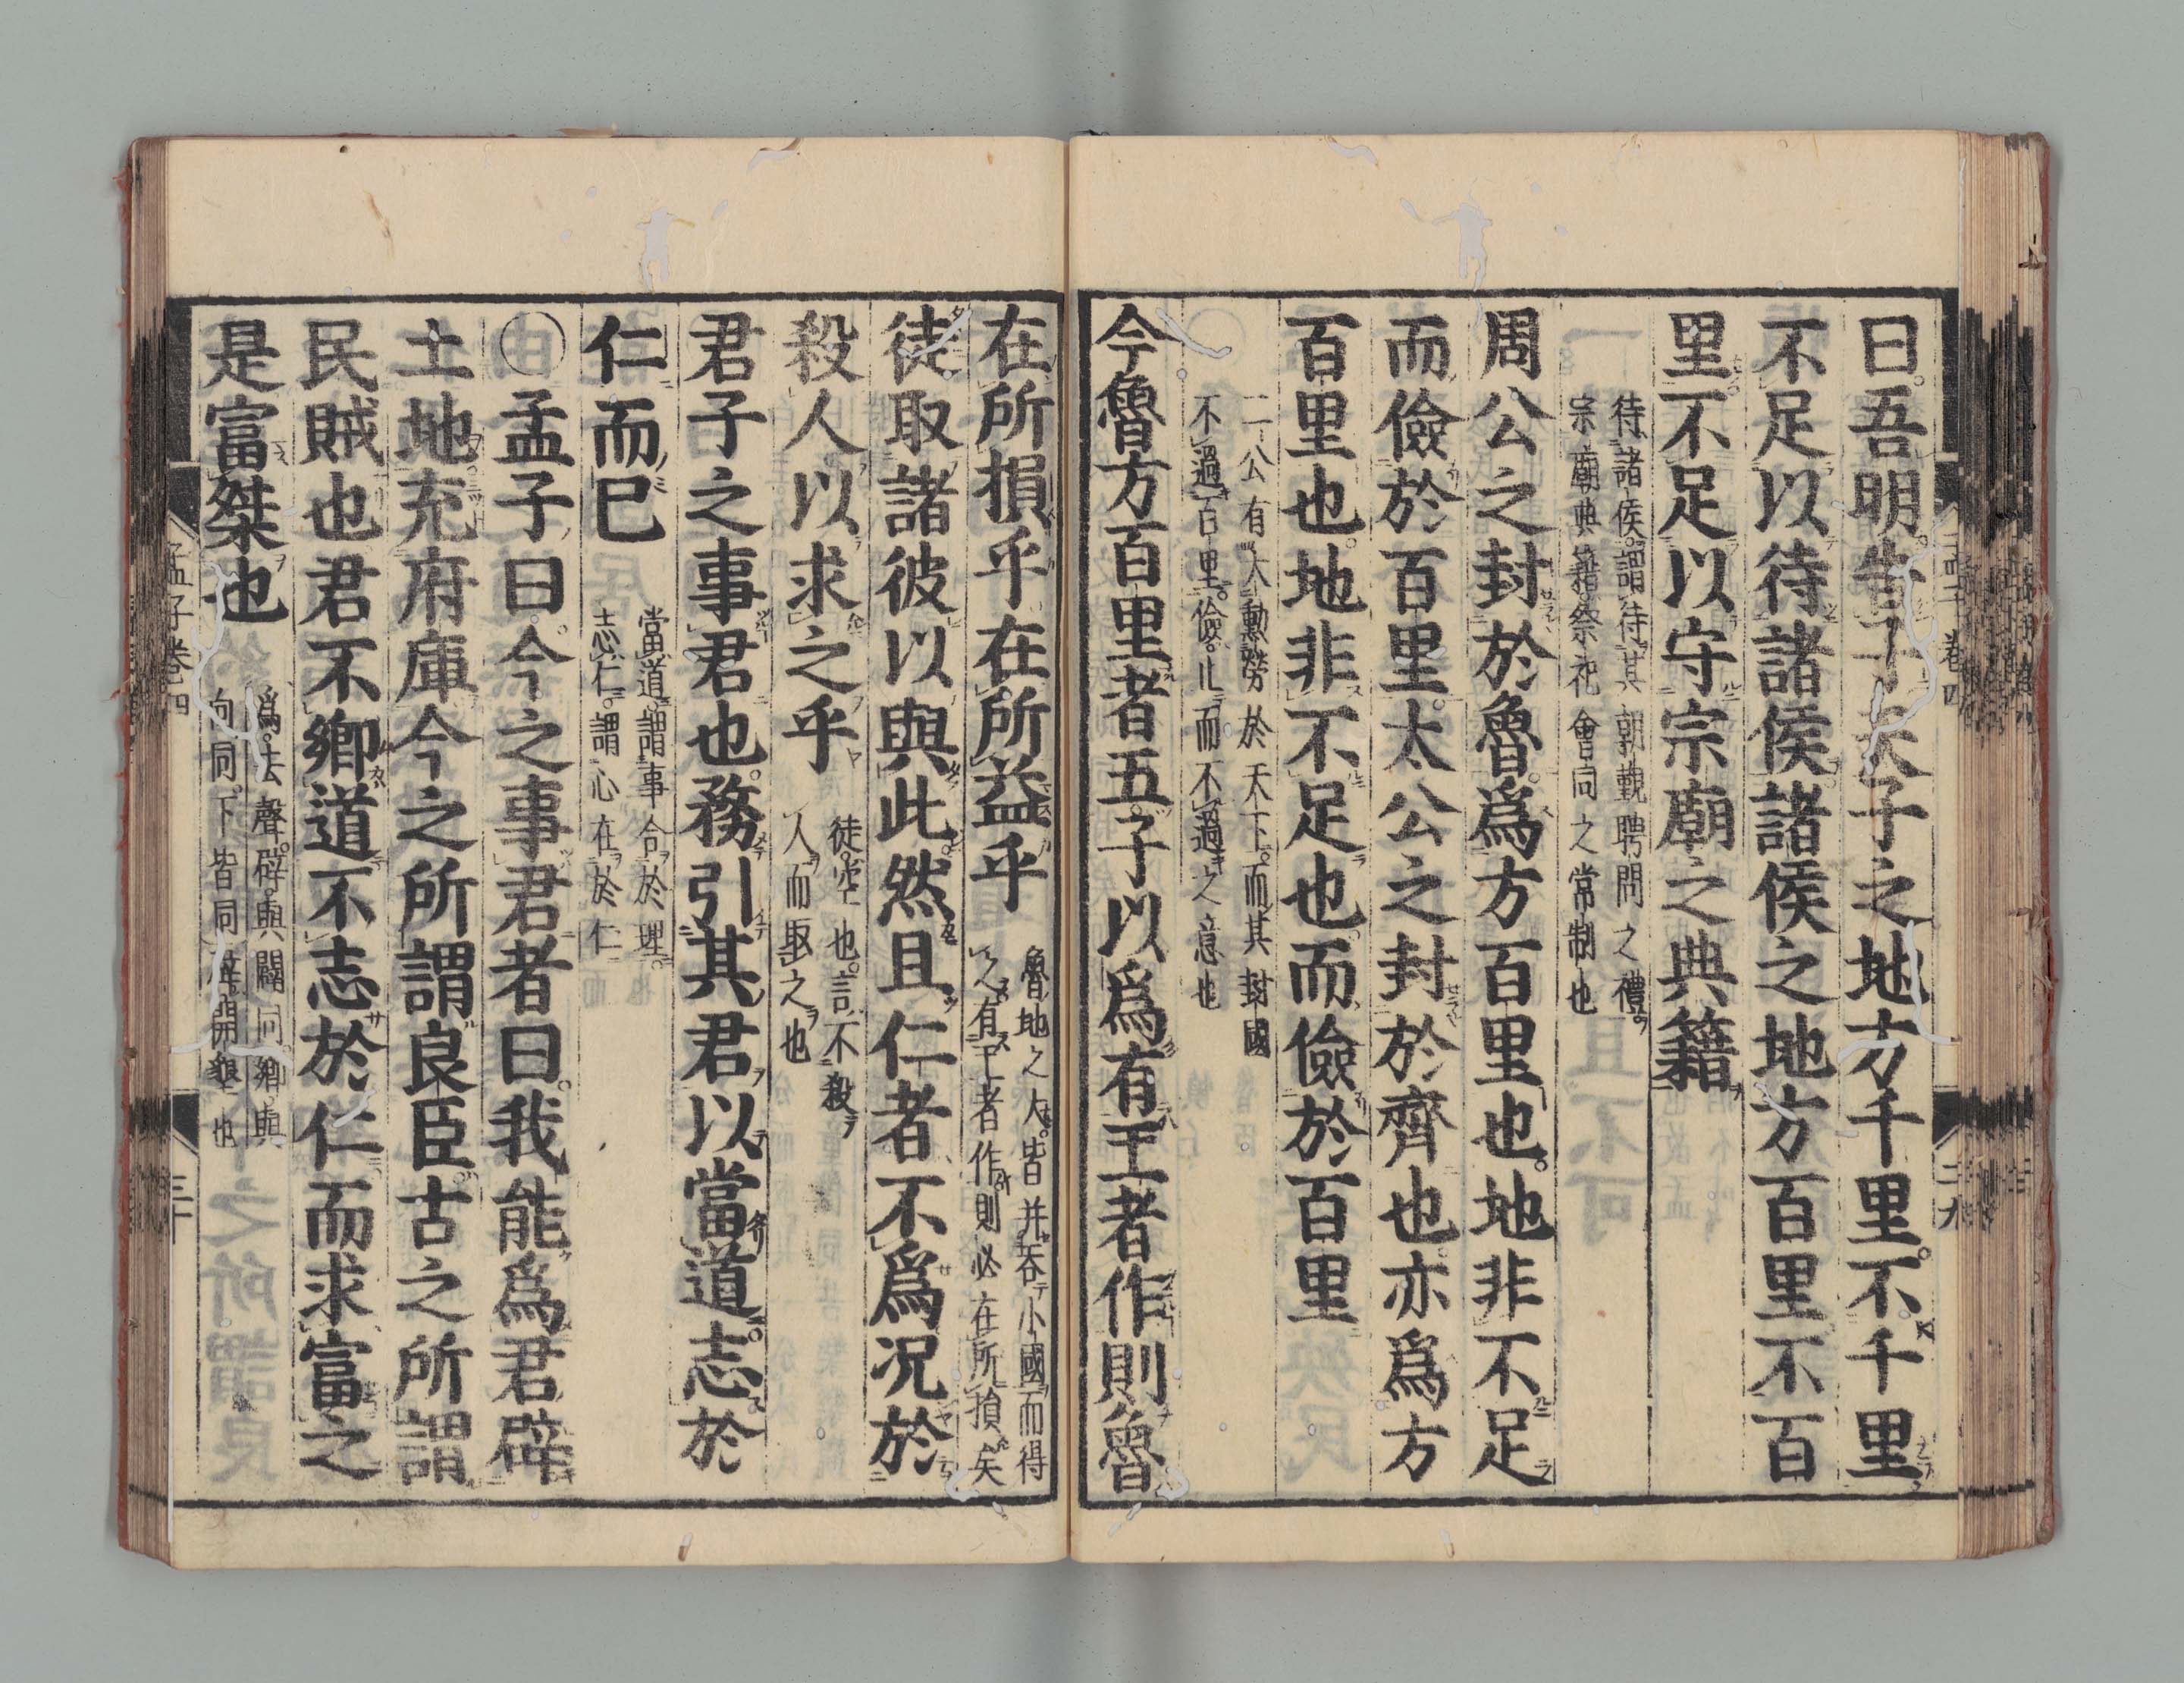 曰吾明告子天子之地方千里不千里
不足以待諸侯諸侯之地方百里不百
里不足以守宗廟之典籍
待諸侯謂待其朝覲聘問之禮
宗廟典籍祭祀會同之常制也
周公之封於魯爲方百里也地非不足
而儉於百里太公之封於齊也亦爲方
百里也地非不足也而儉於百里
二公有大勳勞於天下而其封國
不過百里儉止而不過之意也
今魯方百里者五子以爲有王者作則魯
在所損乎在所益乎
魯地之大皆并吞小國而得
之有王者作則必在所損矣
徒取諸彼以與此然且仁者不爲況於
殺人以求之乎
徒空也言不殺
人而取之也
君子之事君也務引其君以當道志於
仁而已
當道謂事合於理
志仁謂心在於仁
○孟子曰今之事君者曰我能爲君辟
土地充府庫今之所謂良臣古之所謂
民賊也君不鄉道不志於仁而求富之
是富桀也
爲去聲辟與闢同鄉與
向同下皆同辟開墾也
孟子卷四
三十